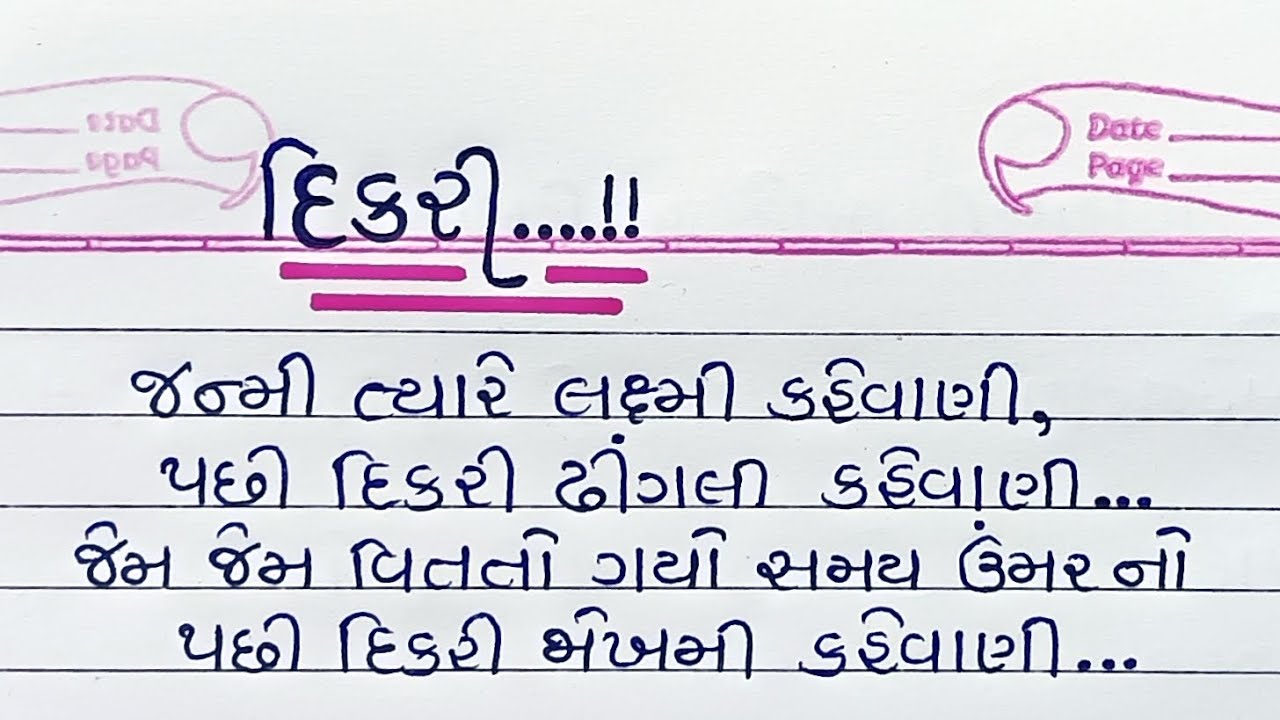 Date
Page
દિકરી....!!
જન્મી ત્યારે લક્ષ્મી કહેવાણી,
પછી દિકરી ઢીંગલી કહેવાણી...
જેમ જેમ વિતતો ગયો સમય ઉંમરનો
પછી દિકરી જોખમી કહેવાણી...